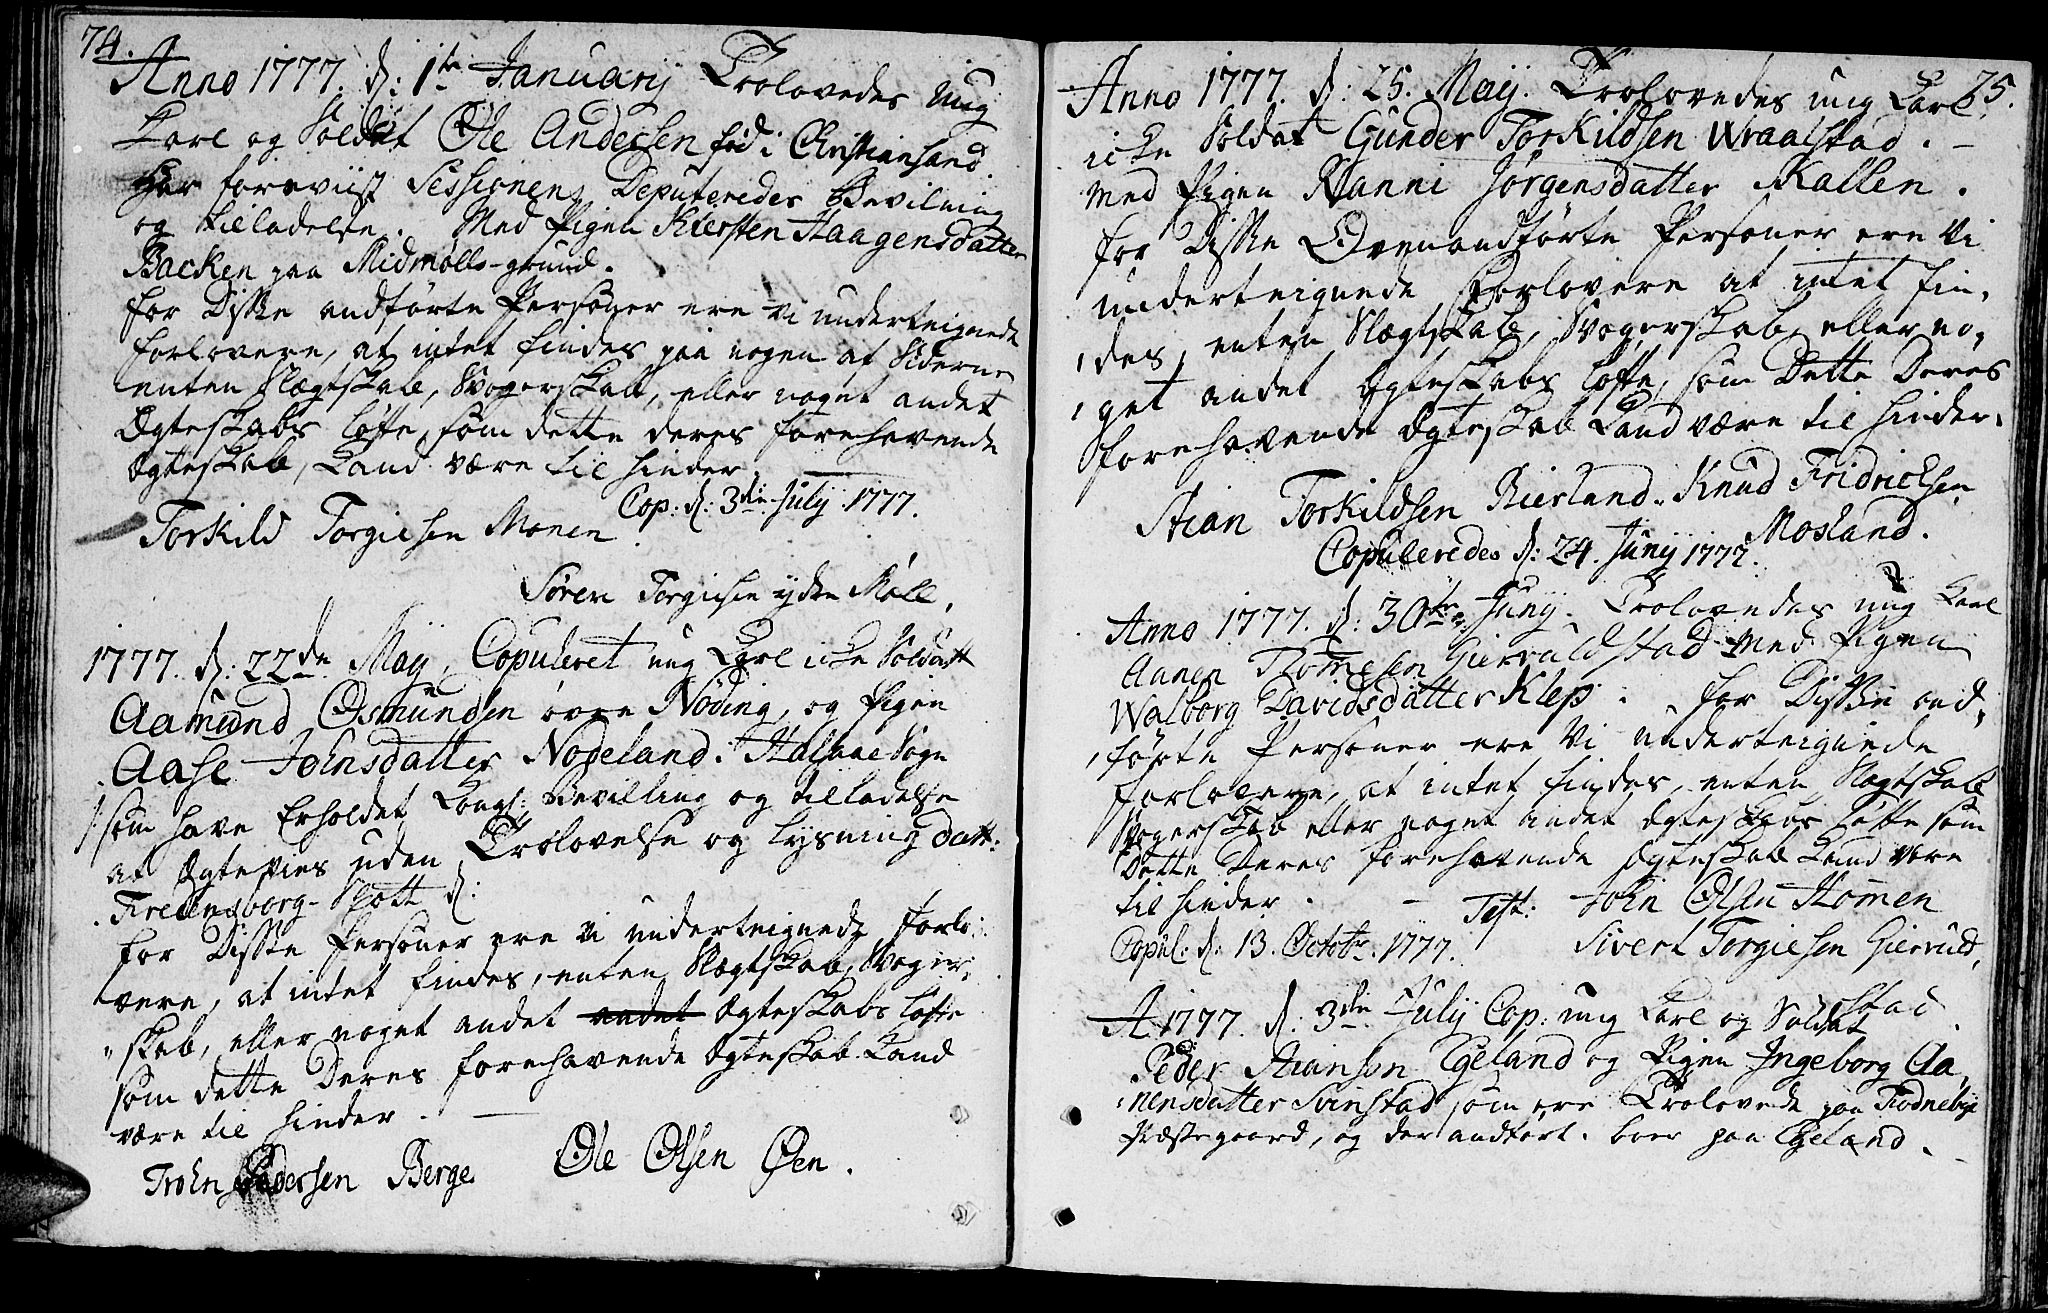 74.
Anno 1777. d: 1te Januarij Trolovedes ung
Karl og Soldat Ole Andersen fød i Christiansand
Har foreviist Sessionens Deputeredes Bevilning
og tilladelse. Med Pigen Kiersten Haagensdatter
Backen paa Midmølls-grund.
for Disse andførte Personer ere vi underteignede
forlovere, at intet findes paa nogen af Siderne
enten Slægtskab, Svogerskab, eller noget andet
Ægteskabs løfte, som dette deres forehavende
Ægteskab, Kand være til hinder.
Cop: d: 3die July 1777.
Torkild Torgiesen Monen.
Søren Torgiesen ydre Møll.
1777. d: 22de Maij, Copuleret ung Karl icke Soldatt
Aamund Osmundsen øvre Nøding, og Pigen
Aase Johnsdatter Nodeland. Halsaae Sogn
/: som have Erholdet Kongl: Bevilling og tilladelse
at Ægtevies uden Trolovelse og lysning datt:
Fredensborg-Slott d:
for Disse Personer ere vi underteignede forlo:
vere, at intet findes, enten Slægtskab, Svoger-
skab, eller noget andet andet Ægteskabs løfte
som dette Deres forehavende Ægteskab Kand
være til hinder.
Trohn Pedersen Berge Ole Olsen Øen.
75.
Anno 1777. d: 25. Maij. Trolovedes ung Karl
icke Soldat Gunder Torkildsen Wraalstad.
med Pigen Ranni Jörgensdatter Kallen.
for Disse Ovenandførte Personer ere Vi
underteignede Forlovere at intet fin,
,des, enten Slægtskab, Svogerskab, eller no,
,get andet Ægteskabs løfte, som Dette Deres
forehavende Ægteskab Kand være til hinder.
Stian Torkildsen Rierland. Knud Fridrichsen
Mosland.
Copuleredes d: 24. Junij 1777.
Anno 1777. d: 30te Junij Trolovedes ung Karl
Aanen Tomesen Gieruldstad med Pigen
Walborg Davidsdatter Klep. for Disse and,
,førte Personer ere Vi underteignede
forlovere, at intet findes, enten Slægtskab
Svogerskab eller noget andet Ægteskabs løfte som
Dette Deres forehavende Ægteskab Kand være
til hinder. Test: John Olsen Homen
Copul: d: 13. Octobr. 1777. Sivert Torgiesen Gieruld,
stad.
A 1777. d: 3die Julij Cop: ung Karl og Soldat
Peder Stianson Egeland og Pigen Ingeborg Aa,
,nensdatter Svinstad som ere Trolovede paa
Præstegaard, og der andført. boer paa Egeland.